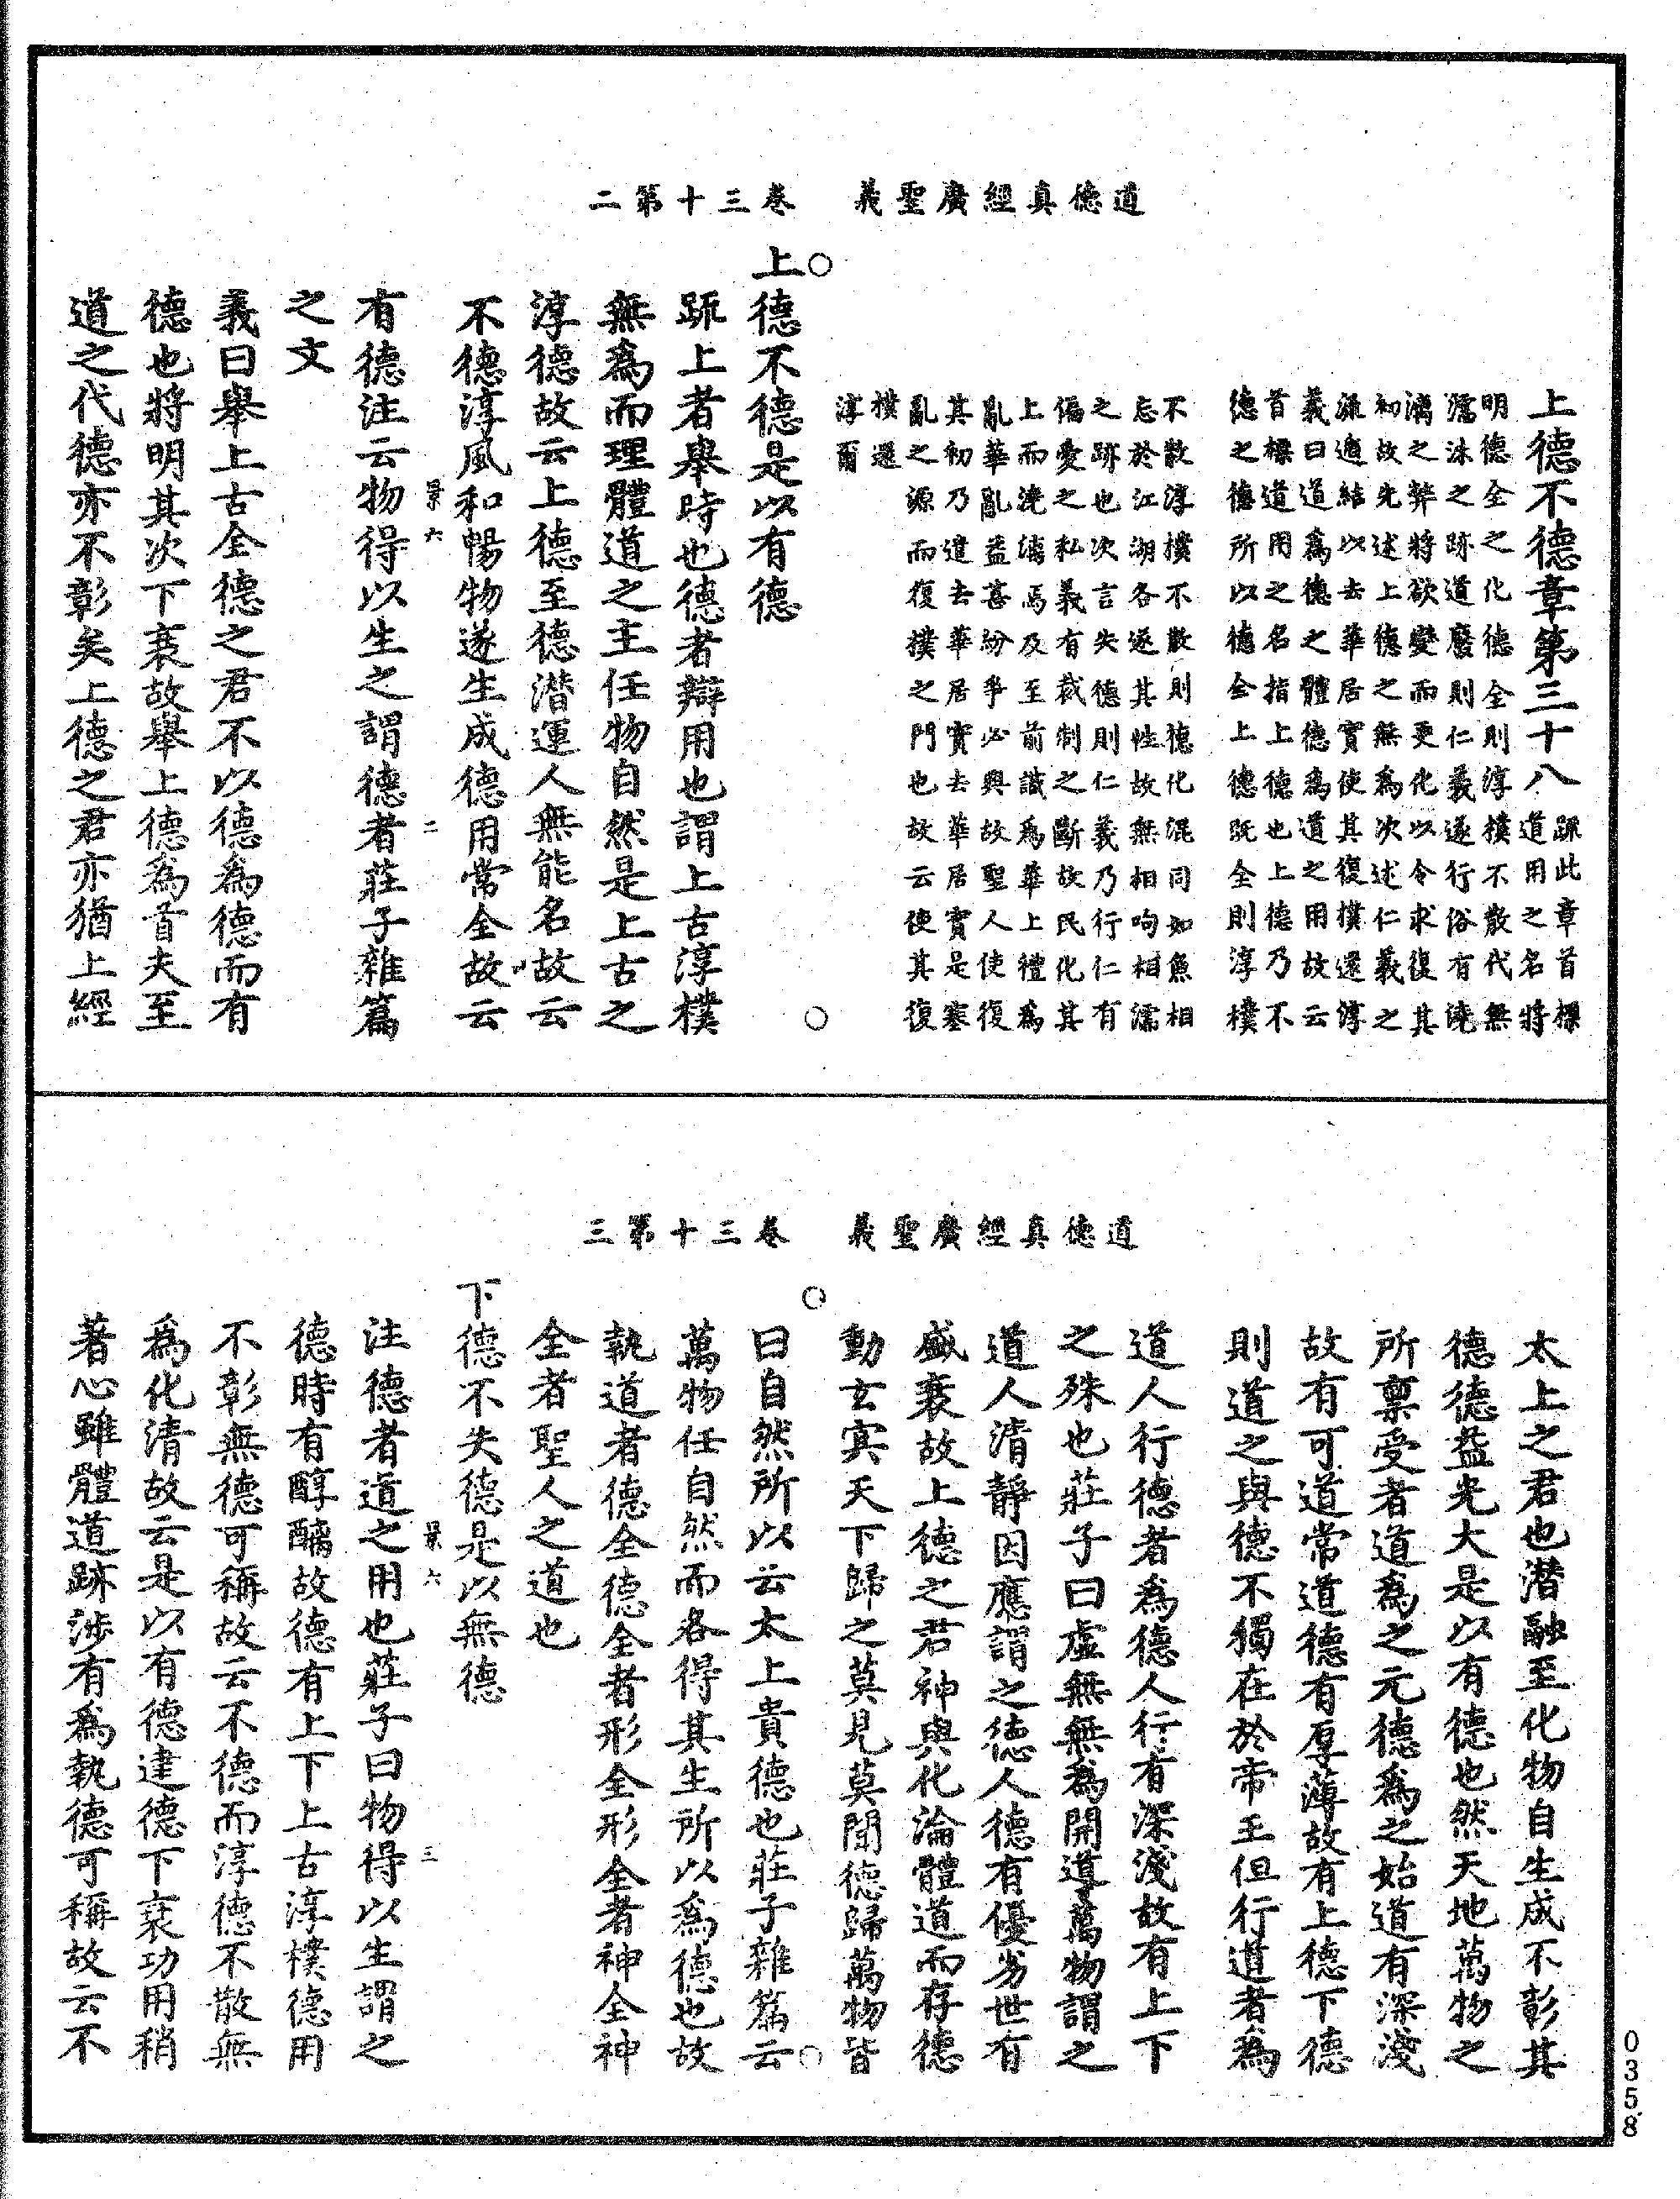 道德真經廣聖義　卷三十第二
上德不德章第三十八 疏此章首標
道用之名將
明德全之化德全則淳樸不散代無
濡沫之跡道廢則仁義遂行俗有澆
漓之弊將欲變而更化以令求復其
初故先述上德之無為次述仁義之
結以去華居實使其復樸還淳
義曰道為德之體德為道之用故云
首標道用之名指上德也上德乃不
德之德所以德全上德既全則淳樸
不散淳樸不散則德化混同如魚相
忘於江湖各遂其性故無相呴相濡
之跡也次言失德則仁義乃行仁有
偏愛之私義有裁制之斷故民化其
上而澆漓焉及至前識為華上禮為
亂華亂益甚紛爭必興故聖人使復
其初乃遣去華居實去華居實是塞
亂之源而復樸之門也故云使其復
樸還
淳爾
○　○
上德不德是以有德
疏上者舉時也德者辯用也謂上古淳樸
無為而理體道之主任物自然是上古之
淳德故云上德至德潛運人無能名故云
不德淳風和暢物遂生成德用常全故云
景六　二
有德注云物得以生之謂德者莊子雜篇
之文
義曰舉上古全德之君不以德為德而有
德也將明其次下衰故舉上德為首夫至
道之代德亦不彰矣上德之君亦猶上經
道德真經廣聖義　卷三十第三
太上之君也潛融至化物自生成不彰其
德德益光大是以有德也然天地萬物之
所禀受者道為之元德為之始道有深淺
故有可道常道德有厚薄故有上德下德
則道之與德不獨在於帝王但行道者為
道人行德者為德人行有深淺故有上下
之殊也莊子曰虛無無為開道萬物謂之
道人清靜因應謂之德人德有優劣世有
盛衰故上德之君神與化淪體道而存德
動玄寞天下歸之莫見莫聞德歸萬物皆
○　○
曰自然所以云太上貴德也莊子雜篇云
萬物任自然而各得其生所以為德也故
執道者德全德全者形全形全者神全神
全者聖人之道也
下德不失德是以無德
景六　三
注德者道之用也莊子曰物得以生謂之
德時有醇醨故德有上下上古淳樸德用
不彰無德可稱故云不德而淳德不散無
為化清故云是以有德逮德下衰功用稍
著心雖體道跡涉有為執德可稱故云不
0358